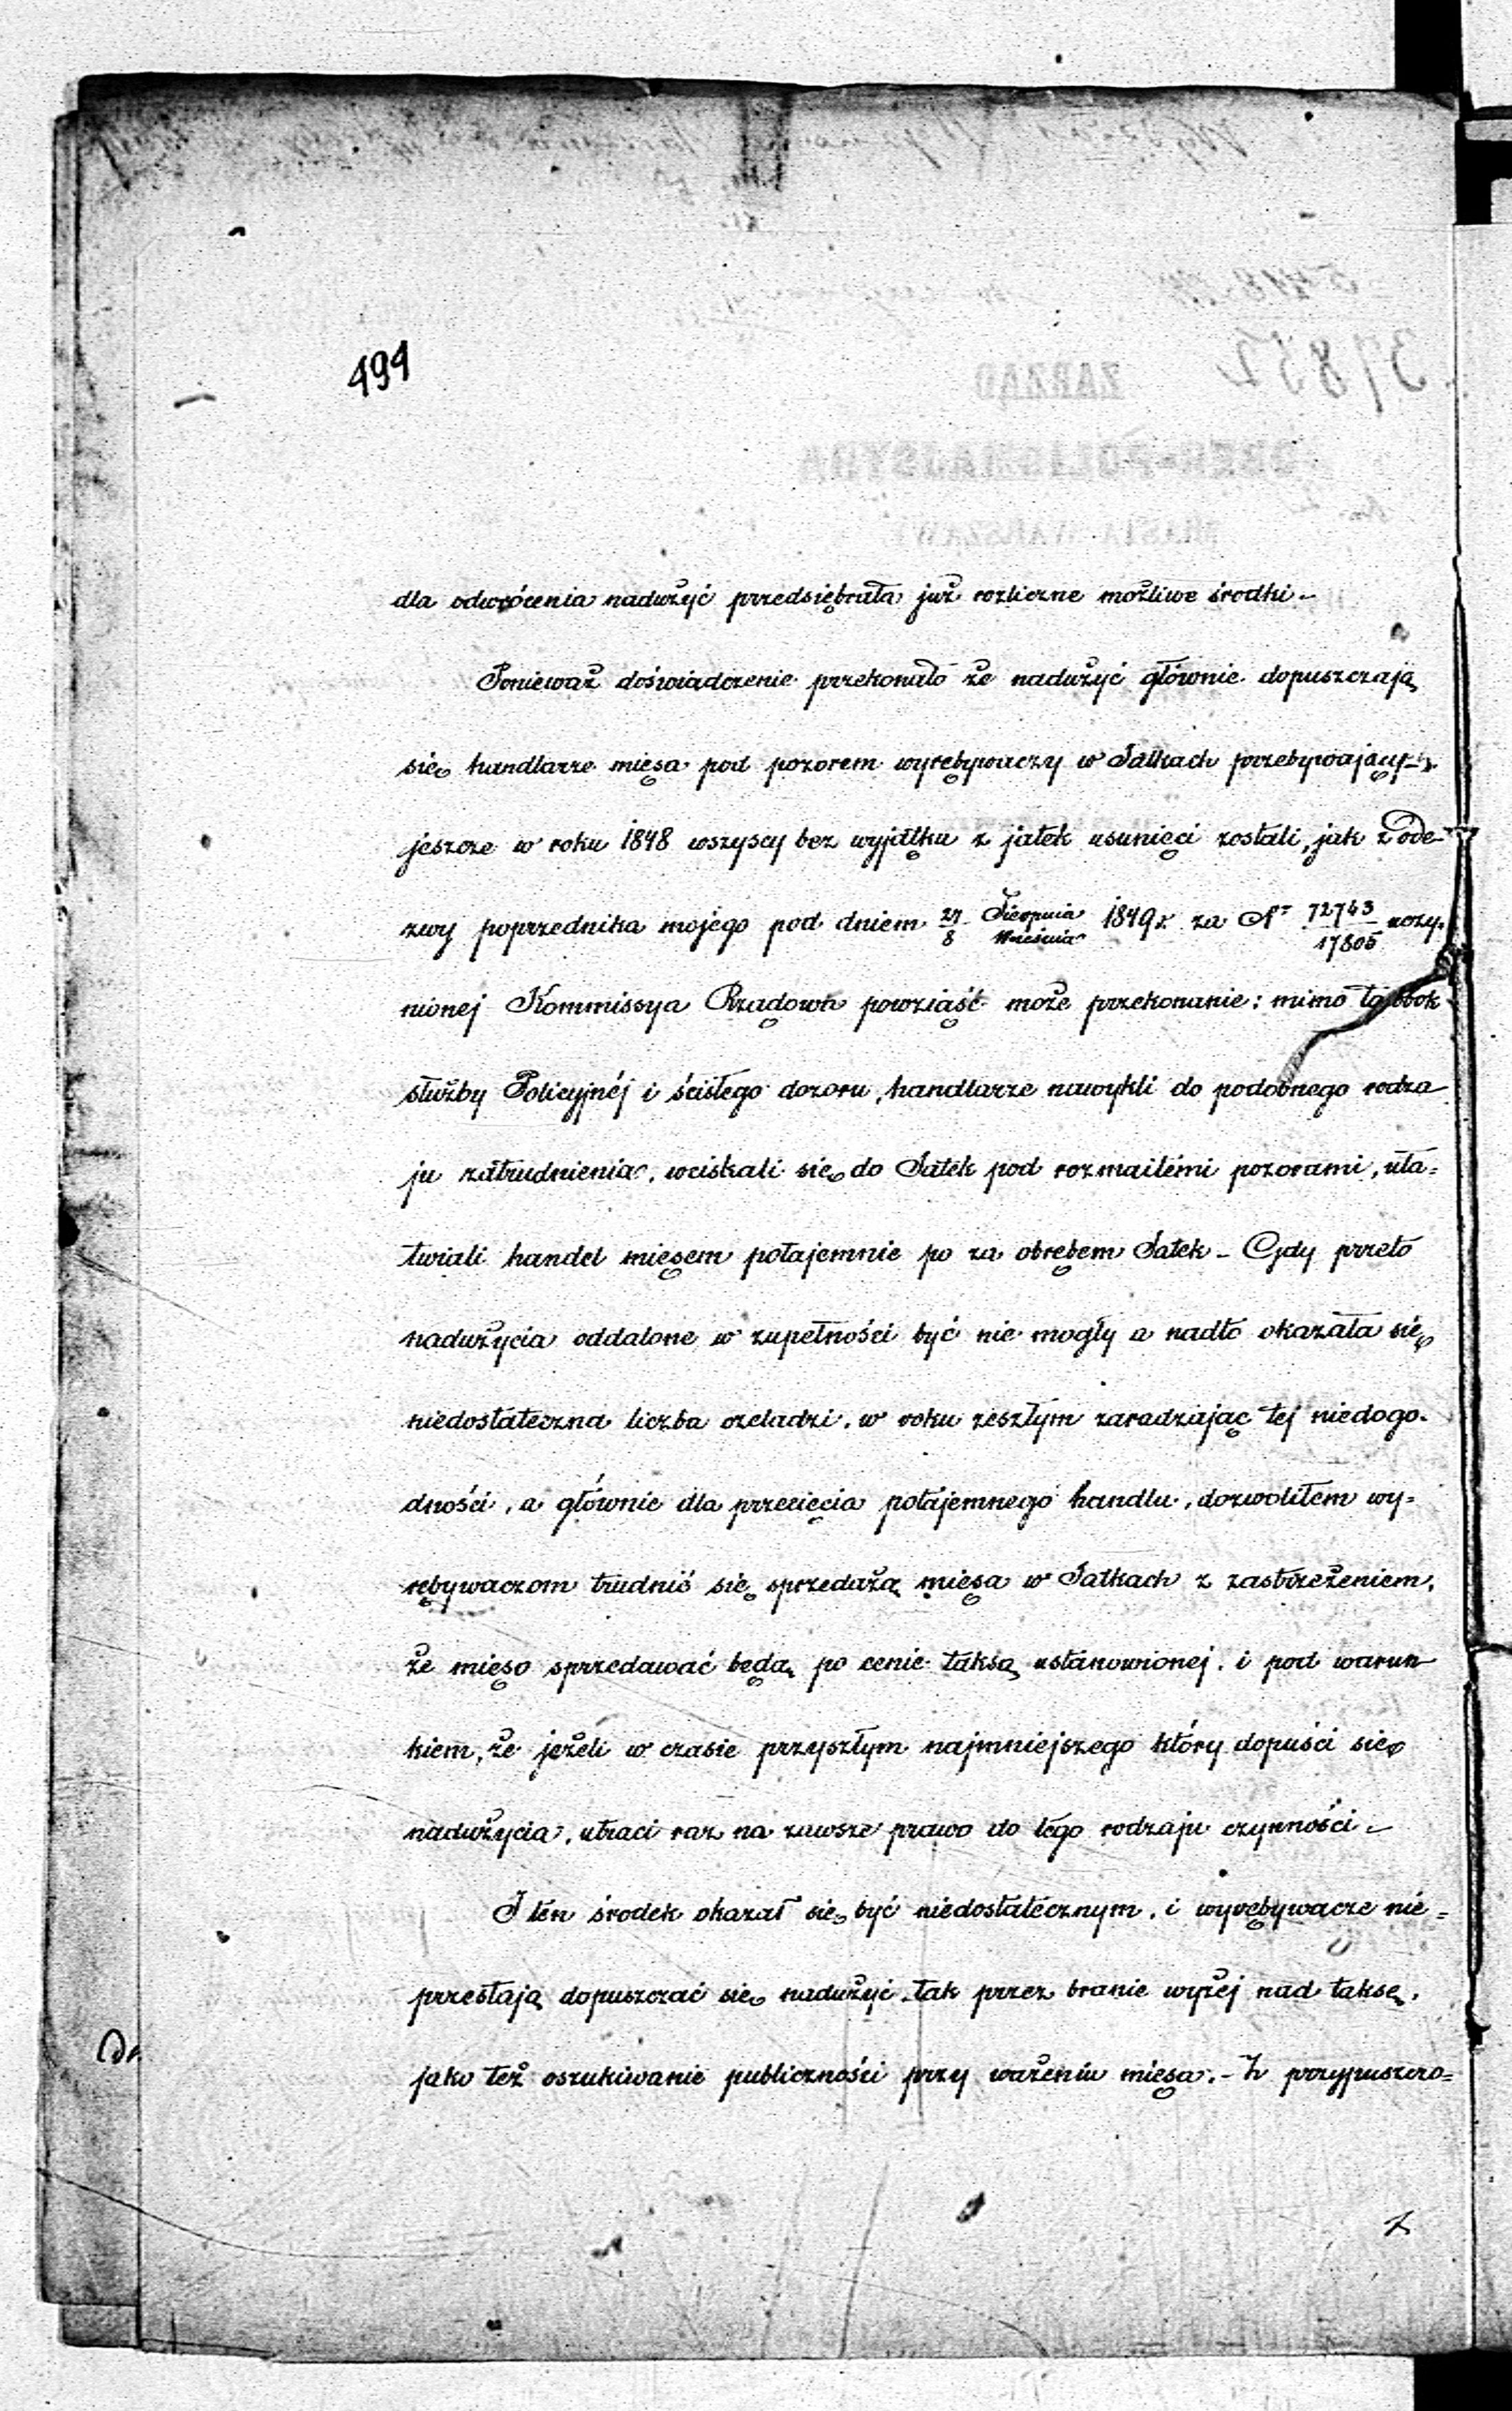 494
dla odwrócenia nadużyć przedsiębrała już rozliczne możliwe środki –
Ponieważ doświadczenie przekonało że nadużyć głównie dopuszczają
się handlarze mięsa pod pozorem wyrębywaczy w Jatkach przebywający
jeszcze w roku 1848 wszyscy bez wyjątku z jatek usunięci zostali, jak z ode-
zwy poprzednika mojego pod dniem 27/8 Sierpnia/Września 1849 r. za Nr 72743/17805 uczy-
nionej Kommissya Rządowa powziąść może przekonanie: mimo to obok
służby Policyjnéj i ścisłego dozoru, handlarze nawykli do podobnego rodza
ju zatrudnienia, wciskali się do Jatek pod rozmaitémi pozorami, uła=
twiali handel mięsem potajemnie po za obrębem Jatek – Gdy przeto
nadużycia oddalone w zupełności być nie mogły a nadto okazała się
niedostateczna liczba czeladzi, w roku zeszłym zaradzając tej niedogo-
dności, a głównie dla przecięcia potajemnego handlu, dozwoliłem wy=
rębywaczom trudnić się sprzedażą mięsa w Jatkach z zastrzeżeniem,
że mięso sprzedawać będą po cenie taksą ustanowionej, i pod warun
kiem, że jeżeli w czasie przyszłym najmniejszego który dopuści się
nadużycia, utraci raz na zawsze prawo do tego rodzaju czynności –
I ten środek okazał się być niedostatecznym, i wyrębywacze nie=
przestają dopuszczać się nadużyć tak przez branie wyżej nad taksę,
jako też oszukiwanie publiczności przy ważeniu mięsa. – W przypuszcze=